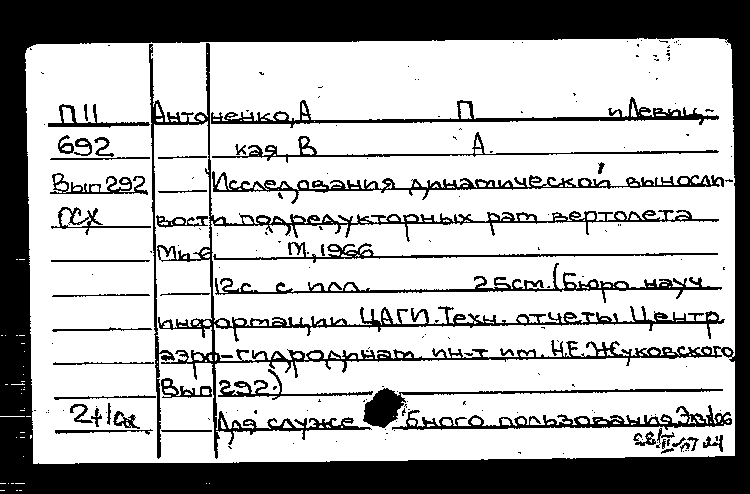 П11 Антоненко, А П и Левиц-
692 кая, В А.
Вып 292 Исследования динамической выносли-
ОСХ вости подредукторных рам вертолета
Ми-6. М., 1966
12 с. с илл. 25 см. (Бюро науч.
информации ЦАГИ. Техн. отчеты. Центр.
аэро-гидродинам. ин-т им. Н.Е. Жуковского
Вып 292.)
Для служе бного пользования.